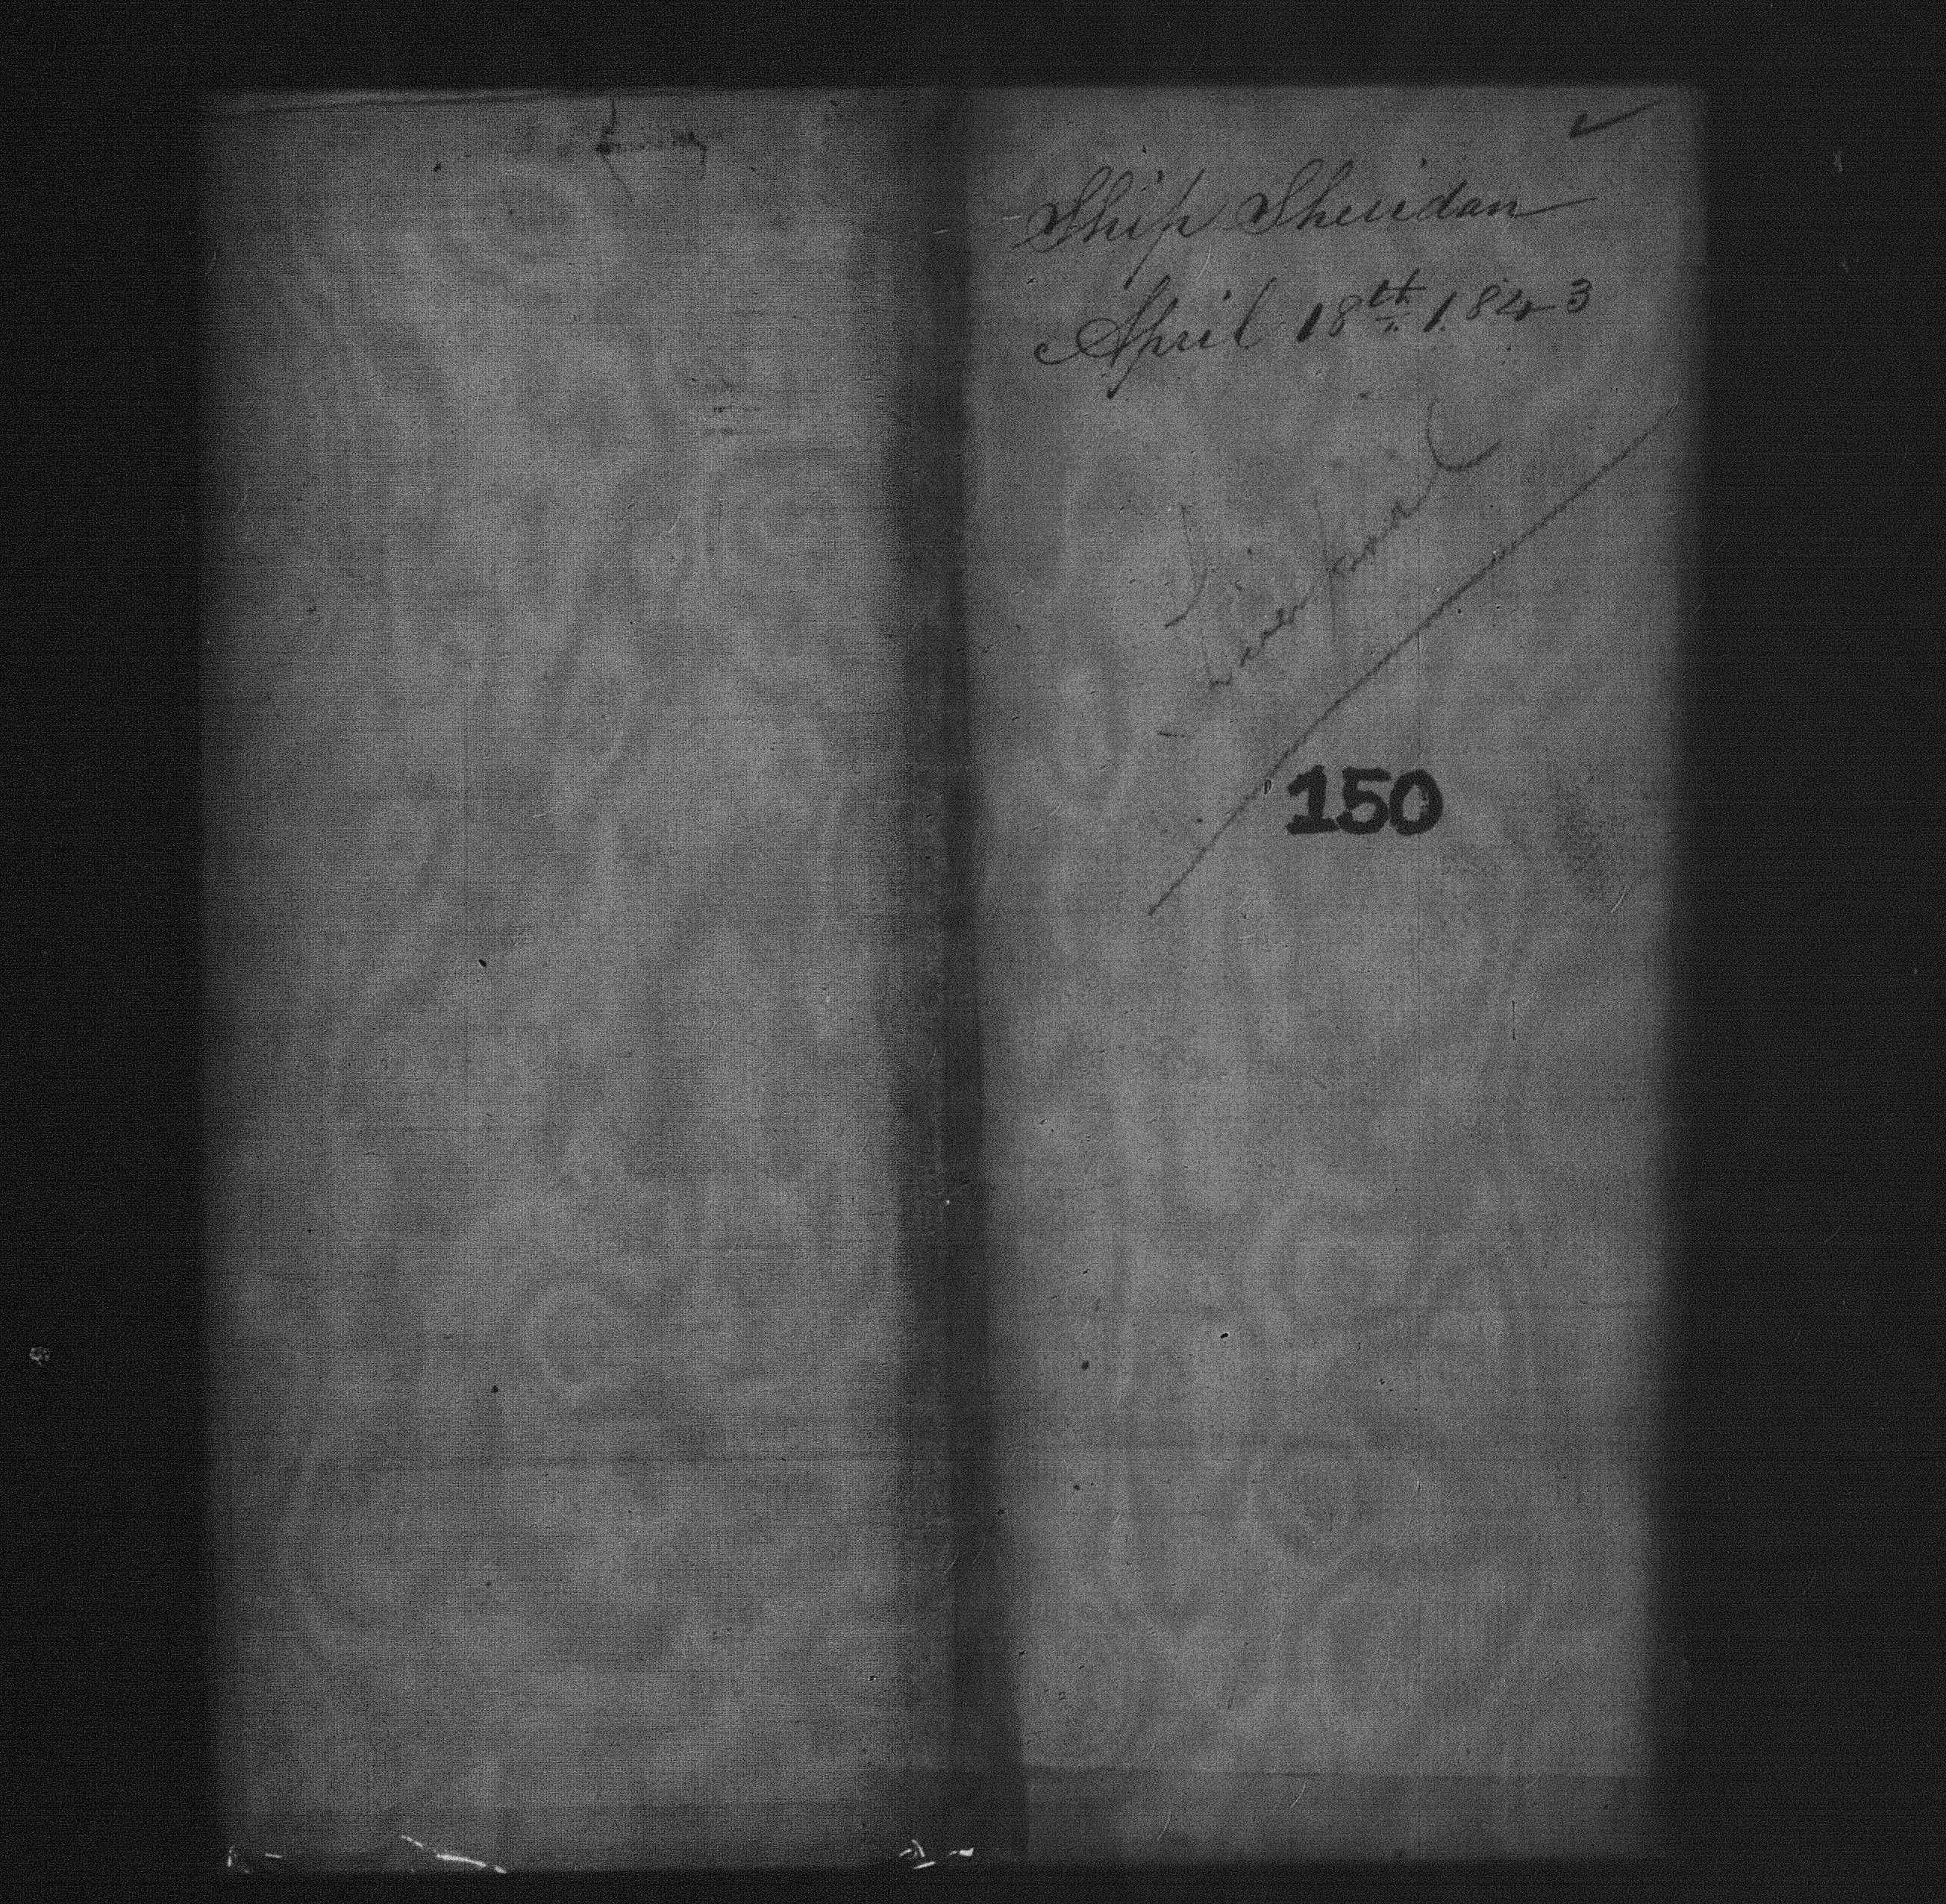 Ship Sheridan
April 18th 1843
Liverpool
150